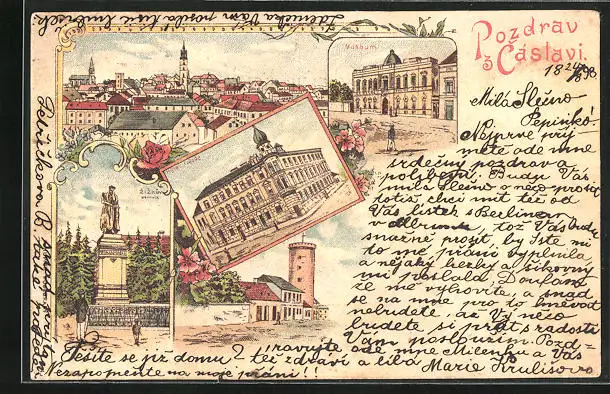 Pozdrav
z Čáslavi.
18 24/8 98
Museum
Žižkův
pomník
Milá Slečno
Pepinko!
Nejprve přij
měte ode mne
srdečný pozdrav a
políbení. Budu Vás
milá Slečno o něco prosit
totiž, chci mít též od
Vás lístek s Berlína
v albumu, tož Vás budu
snažně prosit, by jste mi
to mé přání vyplnila
a nějaký hezký a
mi poslala. Doufám
že mé vyhovíte, a snad
se na mne pro to hněvat
nebudete, až Vy něco
budete si přát s radostí
Vám posloužím. Pozd-
ravujte ode mne Milenku a Vás
též zdraví a líbá Marie Krulišova
Těšíte se již domu?
Nezapomeňte na moje přání!!
Zdenička Vám posílá